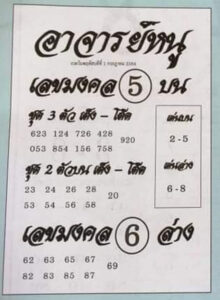 อาจารย์หนู
เลขมงคล 5 บน
ชุด 3 ตัว เต็ง - โต๊ด
623 124 726 428
920
053 854 156 758
เด่นบน
2 - 5
ชุด 2 ตัวบน เต็ง - โต๊ด
23 24 26 28
20
53 54 56 58
เด่นล่าง
6 - 8
เลขมงคล 6 ล่าง
62 63 65 67
69
82 83 85 87